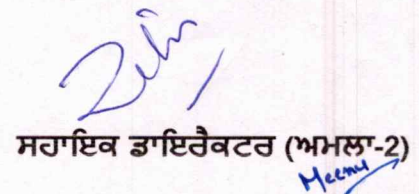 ਸਹਾਇਕ ਡਾਇਰੈਕਟਰ (ਅਮਲਾ-2)
Meenu